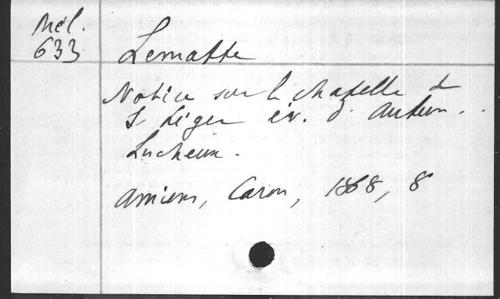 Mél.
633
Lematte
Notice sur la chapelle de
St Léger év. d'Autun..
Lucheux.
Amiens, Caron, 1868, 8°